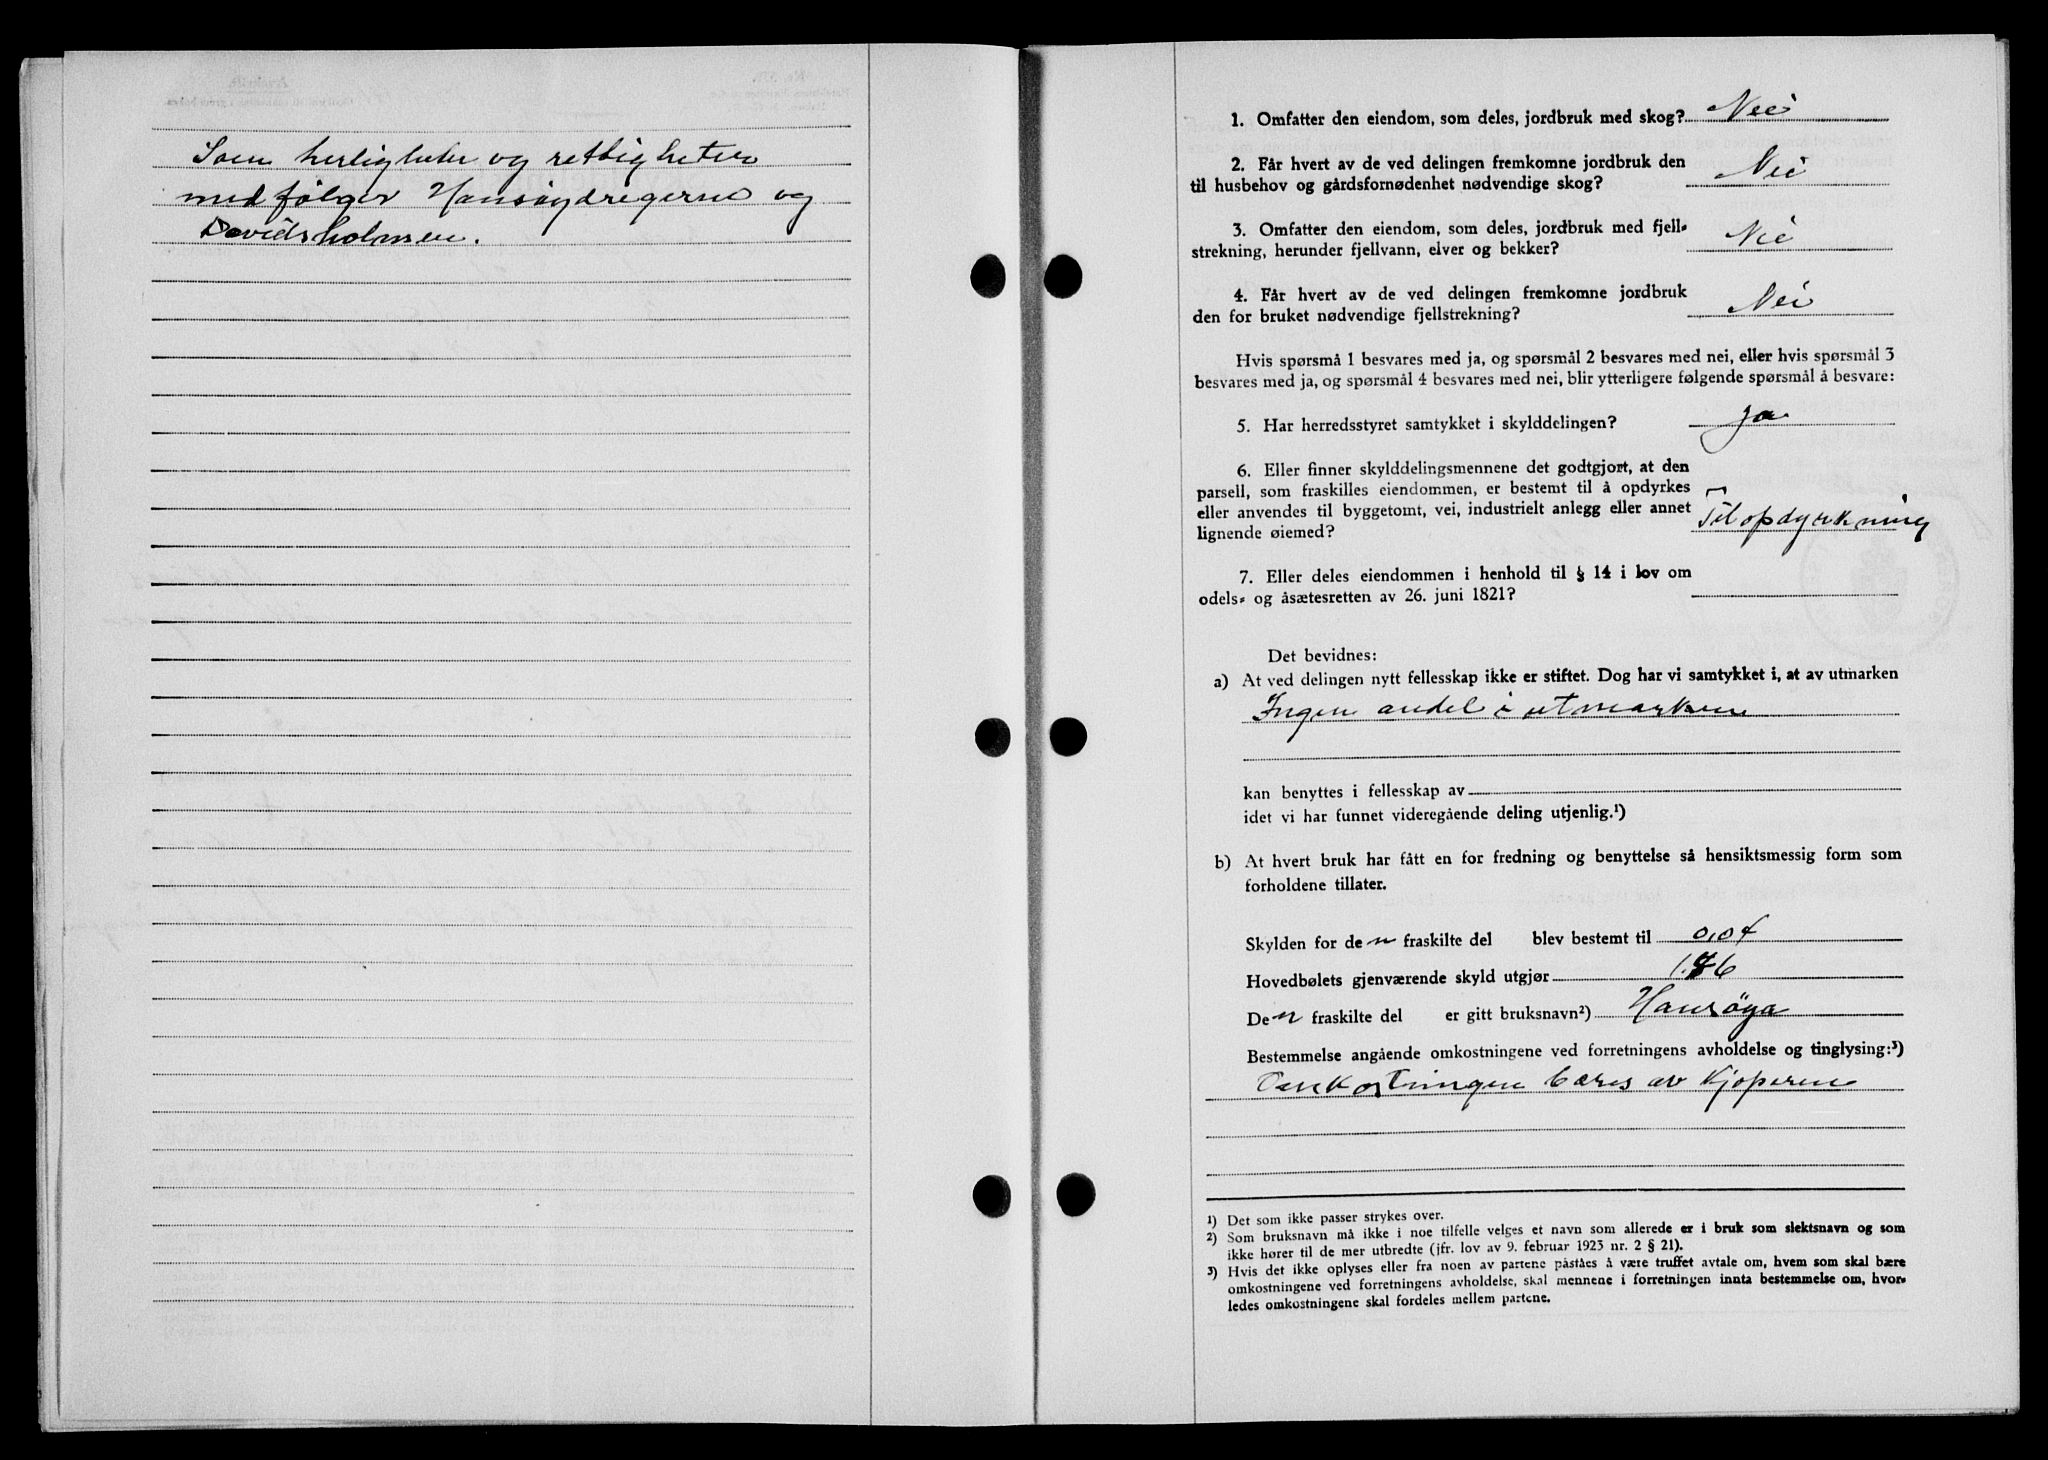 Som herligheter og rettigheter
medfølger Hansøydregerne og
Davidsholmen.
1. Omfatter den eiendom, som deles, jordbruk med skog? Nei
2. Får hvert av de ved delingen fremkomne jordbruk den
til husbehov og gårdsfornødenhet nødvendige skog? Nei
3. Omfatter den eiendom, som deles, jordbruk med fjell-
strekning, herunder fjellvann, elver og bekker? Nei
4. Får hvert av de ved delingen fremkomne jordbruk
den for bruket nødvendige fjellstrekning? Nei
Hvis spørsmå 1 besvares med ja, og spørsmål 2 besvares med nei, eller hvis spørsmål 3
besvares med ja, og spørsmål 4 besvares med nei, blir ytterligere følgende spørsmål å besvare:
5. Har herredsstyret samtykket i skylddelingen? Ja
6. Eller finner skylddelingsmennene det godtgjort, at den
parsell, som fraskilles eiendommen, er bestemt til å opdyrkes
eller anvendes til byggetomt, vei, industrielt anlegg eller annet
lignende øiemed? Til opdyrkning
7. Eller deles eiendommen i henhold til § 14 i lov om
odels- og åsætesretten av 26. juni 1821?
Det bevidnes:
a) At ved delingen nytt fellesskap ikke er stiftet. Dog har vi samtykket i, at av utmarken
Ingen andel i utmarken
kan benyttes i fellesskap av
idet vi har funnet videregående deling utjenlig.¹)
b) At hvert bruk har fått en for fredning og benyttelse så hensiktsmessig form som
forholdene tillater.
Skylden for den fraskilte del blev bestemt til 0,04
Hovedbølets gjenværende skyld utgjør
Den fraskilte del er gitt bruksnavn²) Hansøya
Bestemmelse angående omkostningene ved forretningens avholdelse og tinglysing:³)
Omkostningen bæres av Kjøperen
¹) Det som ikke passer strykes over.
²) Som bruksnavn må ikke i noe tilfelle velges et navn som allerede er i bruk som slektsnavn og som
ikke hører til de mer utbredte (jfr. lov av 9. februar 1923 nr. 2 § 21).
³) Hvis det ikke oplyses eller fra noen av partene påståes å være truffet avtale om, hvem som skal bære
omkostningene ved forretningens avholdelse, skal mennene i forretningen innta bestemmelse om, hvor-
ledes omkostningene skal fordeles mellem partene.